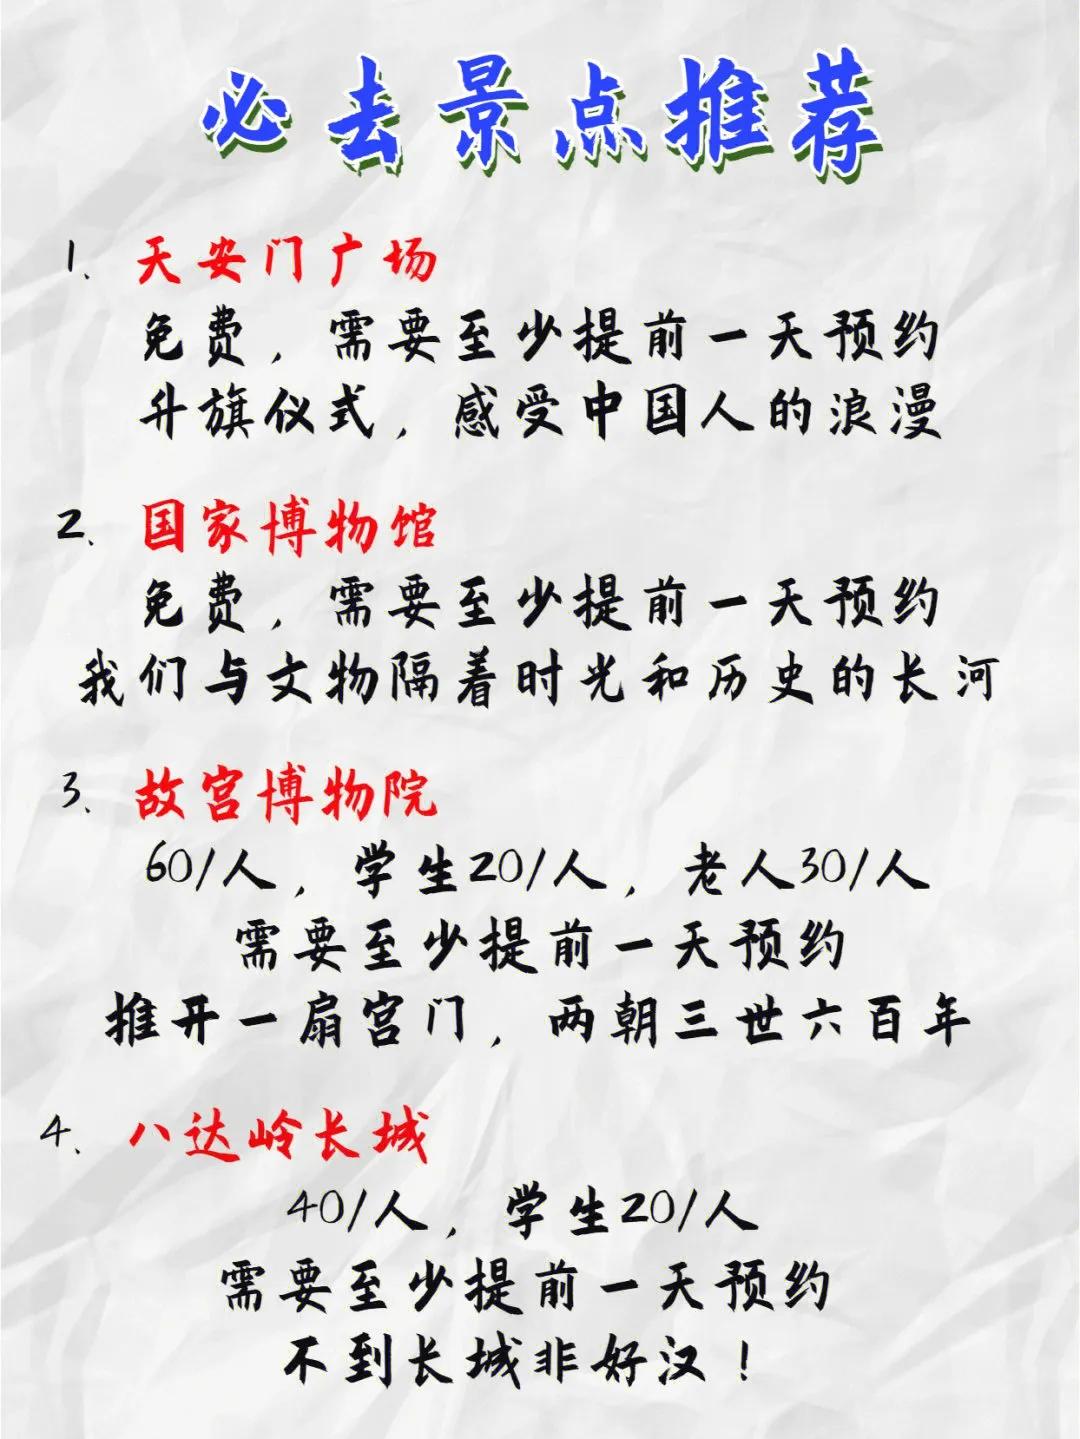 必去景点推荐
1、天安门广场
免费，需要至少提前一天预约
升旗仪式，感受中国人的浪漫
2、国家博物馆
免费，需要至少提前一天预约
我们与文物隔着时光和历史的长河
3、故宫博物院
60/人，学生20/人，老人30/人
需要至少提前一天预约
推开一扇宫门，两朝三世六百年
4、八达岭长城
40/人，学生20/人
需要至少提前一天预约
不到长城非好汉！